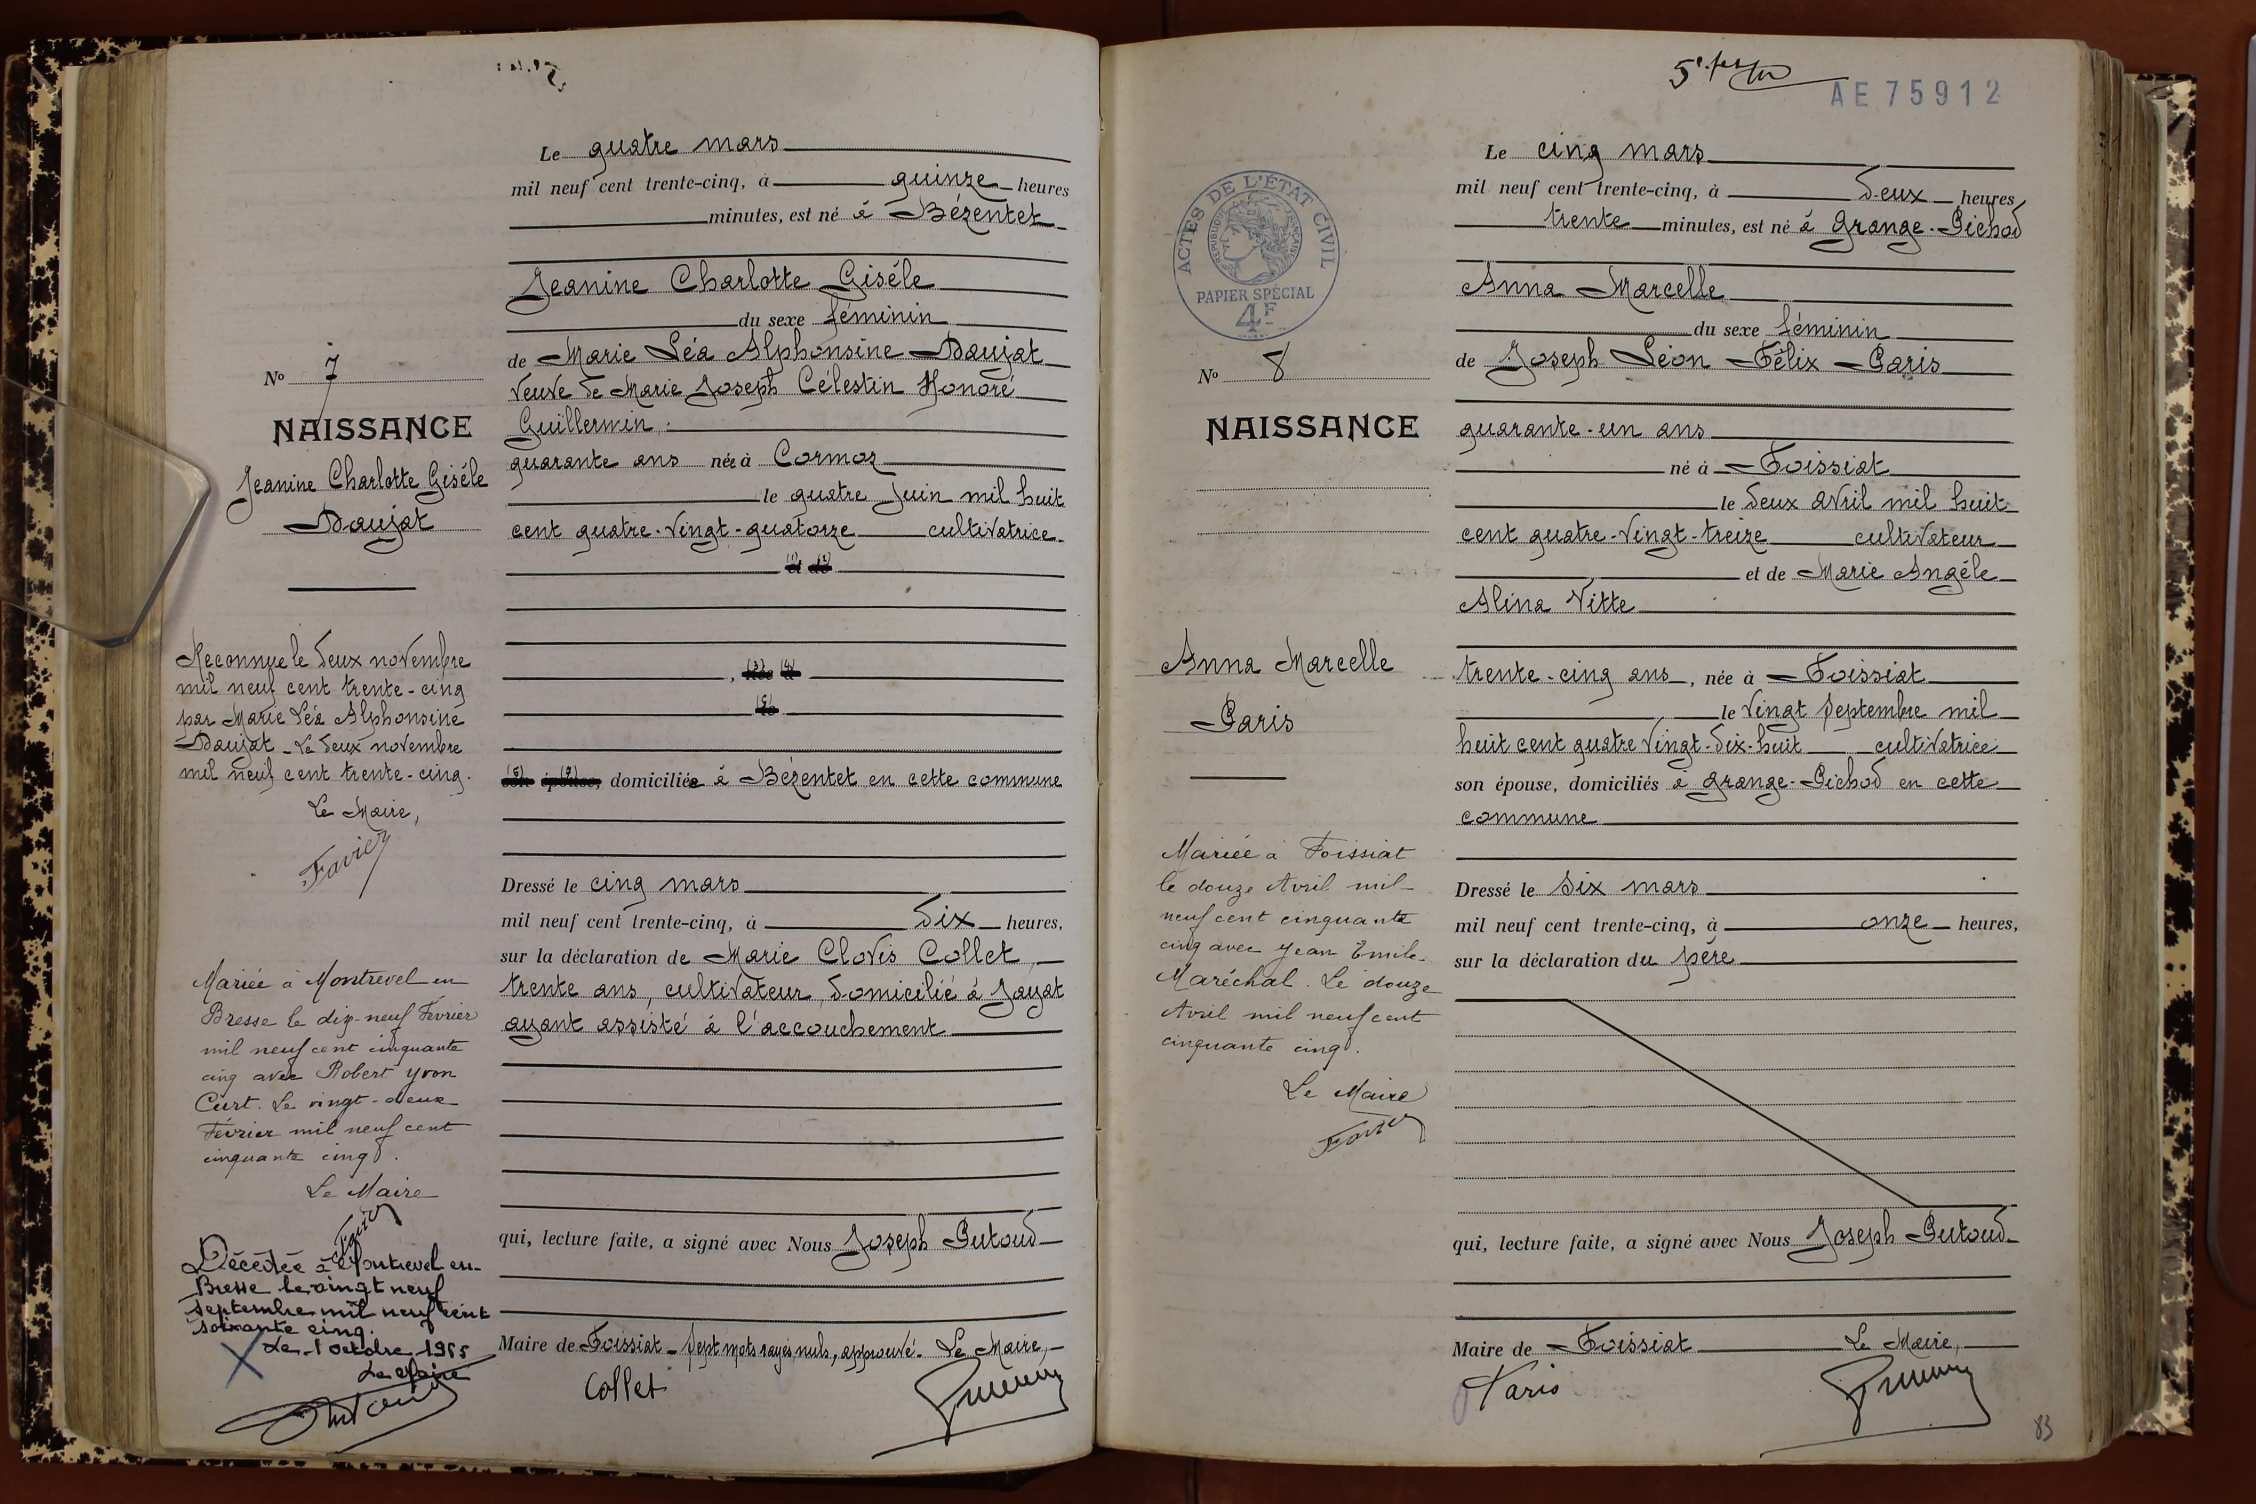 Le quatre mars
mil neuf cent trente-cinq, à quinze heures
minutes, est né à Bézentet
Jeanine Charlotte Gisèle
du sexe féminin
de Marie Léa Alphonsine Daujat
veuve de Marie Joseph Célestin Honoré
Guillermin
quarante ans née à Cormoz
le quatre juin mil huit
cent quatre-vingt-quatorze cultivatrice
domiciliée à Bézentet en cette commune
Dressé le cinq mars
mil neuf cent trente-cinq, à dix heures,
sur la déclaration de Marie Clovis Collet,
trente ans, cultivateur, domicilié à Jayat
ayant assisté à l'accouchement
qui, lecture faite, a signé avec Nous Joseph Putoud
Maire de Foissiat - Sept mots rayés nuls, approuvé. Le Maire,
Collet
No 7
NAISSANCE
Jeanine Charlotte Gisèle
Daujat
Reconnue le deux novembre
mil neuf cent trente-cinq
par Marie Léa Alphonsine
Daujat - Le deux novembre
mil neuf cent trente-cinq.
Le Maire,
Favier
Mariée à Montrevel en
Bresse le dix-neuf Février
mil neuf cent cinquante
cinq avec Robert Yvon
Curt. Le vingt-deux
Février mil neuf cent
cinquante cinq.
Le Maire
Favier
Décédée à Montrevel en
Bresse le vingt neuf
septembre mil neuf cent
soixante cinq.
Le 1 octobre 1965
Le Maire
AE 75912
Le cinq mars
mil neuf cent trente-cinq, à deux heures
trente minutes, est né à Grange-Pichod
Anna Marcelle
du sexe féminin
de Joseph Léon Félix Paris
quarante-un ans
né à Foissiat
le deux avril mil huit
cent quatre-vingt-treize cultivateur
et de Marie Angèle
Alina Vitte
trente-cinq ans, née à Foissiat
le vingt septembre mil
huit cent quatre vingt-dix-huit cultivatrice
son épouse, domiciliés à Grange-Pichod en cette
commune
Dressé le six mars
mil neuf cent trente-cinq, à onze heures,
sur la déclaration du père
qui, lecture faite, a signé avec Nous Joseph Putoud
Maire de Foissiat Le Maire,
Paris
83
ACTES DE L'ÉTAT CIVIL
RÉPUBLIQUE FRANÇAISE
PAPIER SPÉCIAL
4F
No 8
NAISSANCE
Anna Marcelle
Paris
Mariée à Foissiat
le douze Avril mil
neuf cent cinquante
cinq avec Jean Emile
Maréchal. Le douze
Avril mil neuf cent
cinquante cinq.
Le Maire
Favier